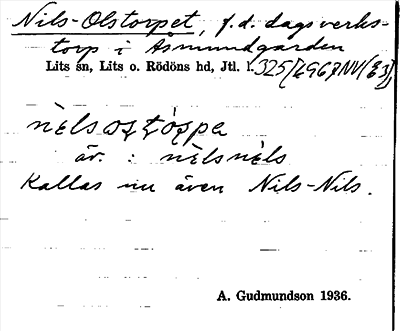 Nils-Olstorpet, f.d. dagsverks-
torp i Åsmundgården
Lits sn, Lits o. Rödöns hd, Jtl. l.
nèls
äv. : nèlsnèls
Kallas nu även Nils-Nils.
A. Gudmundson 1936.